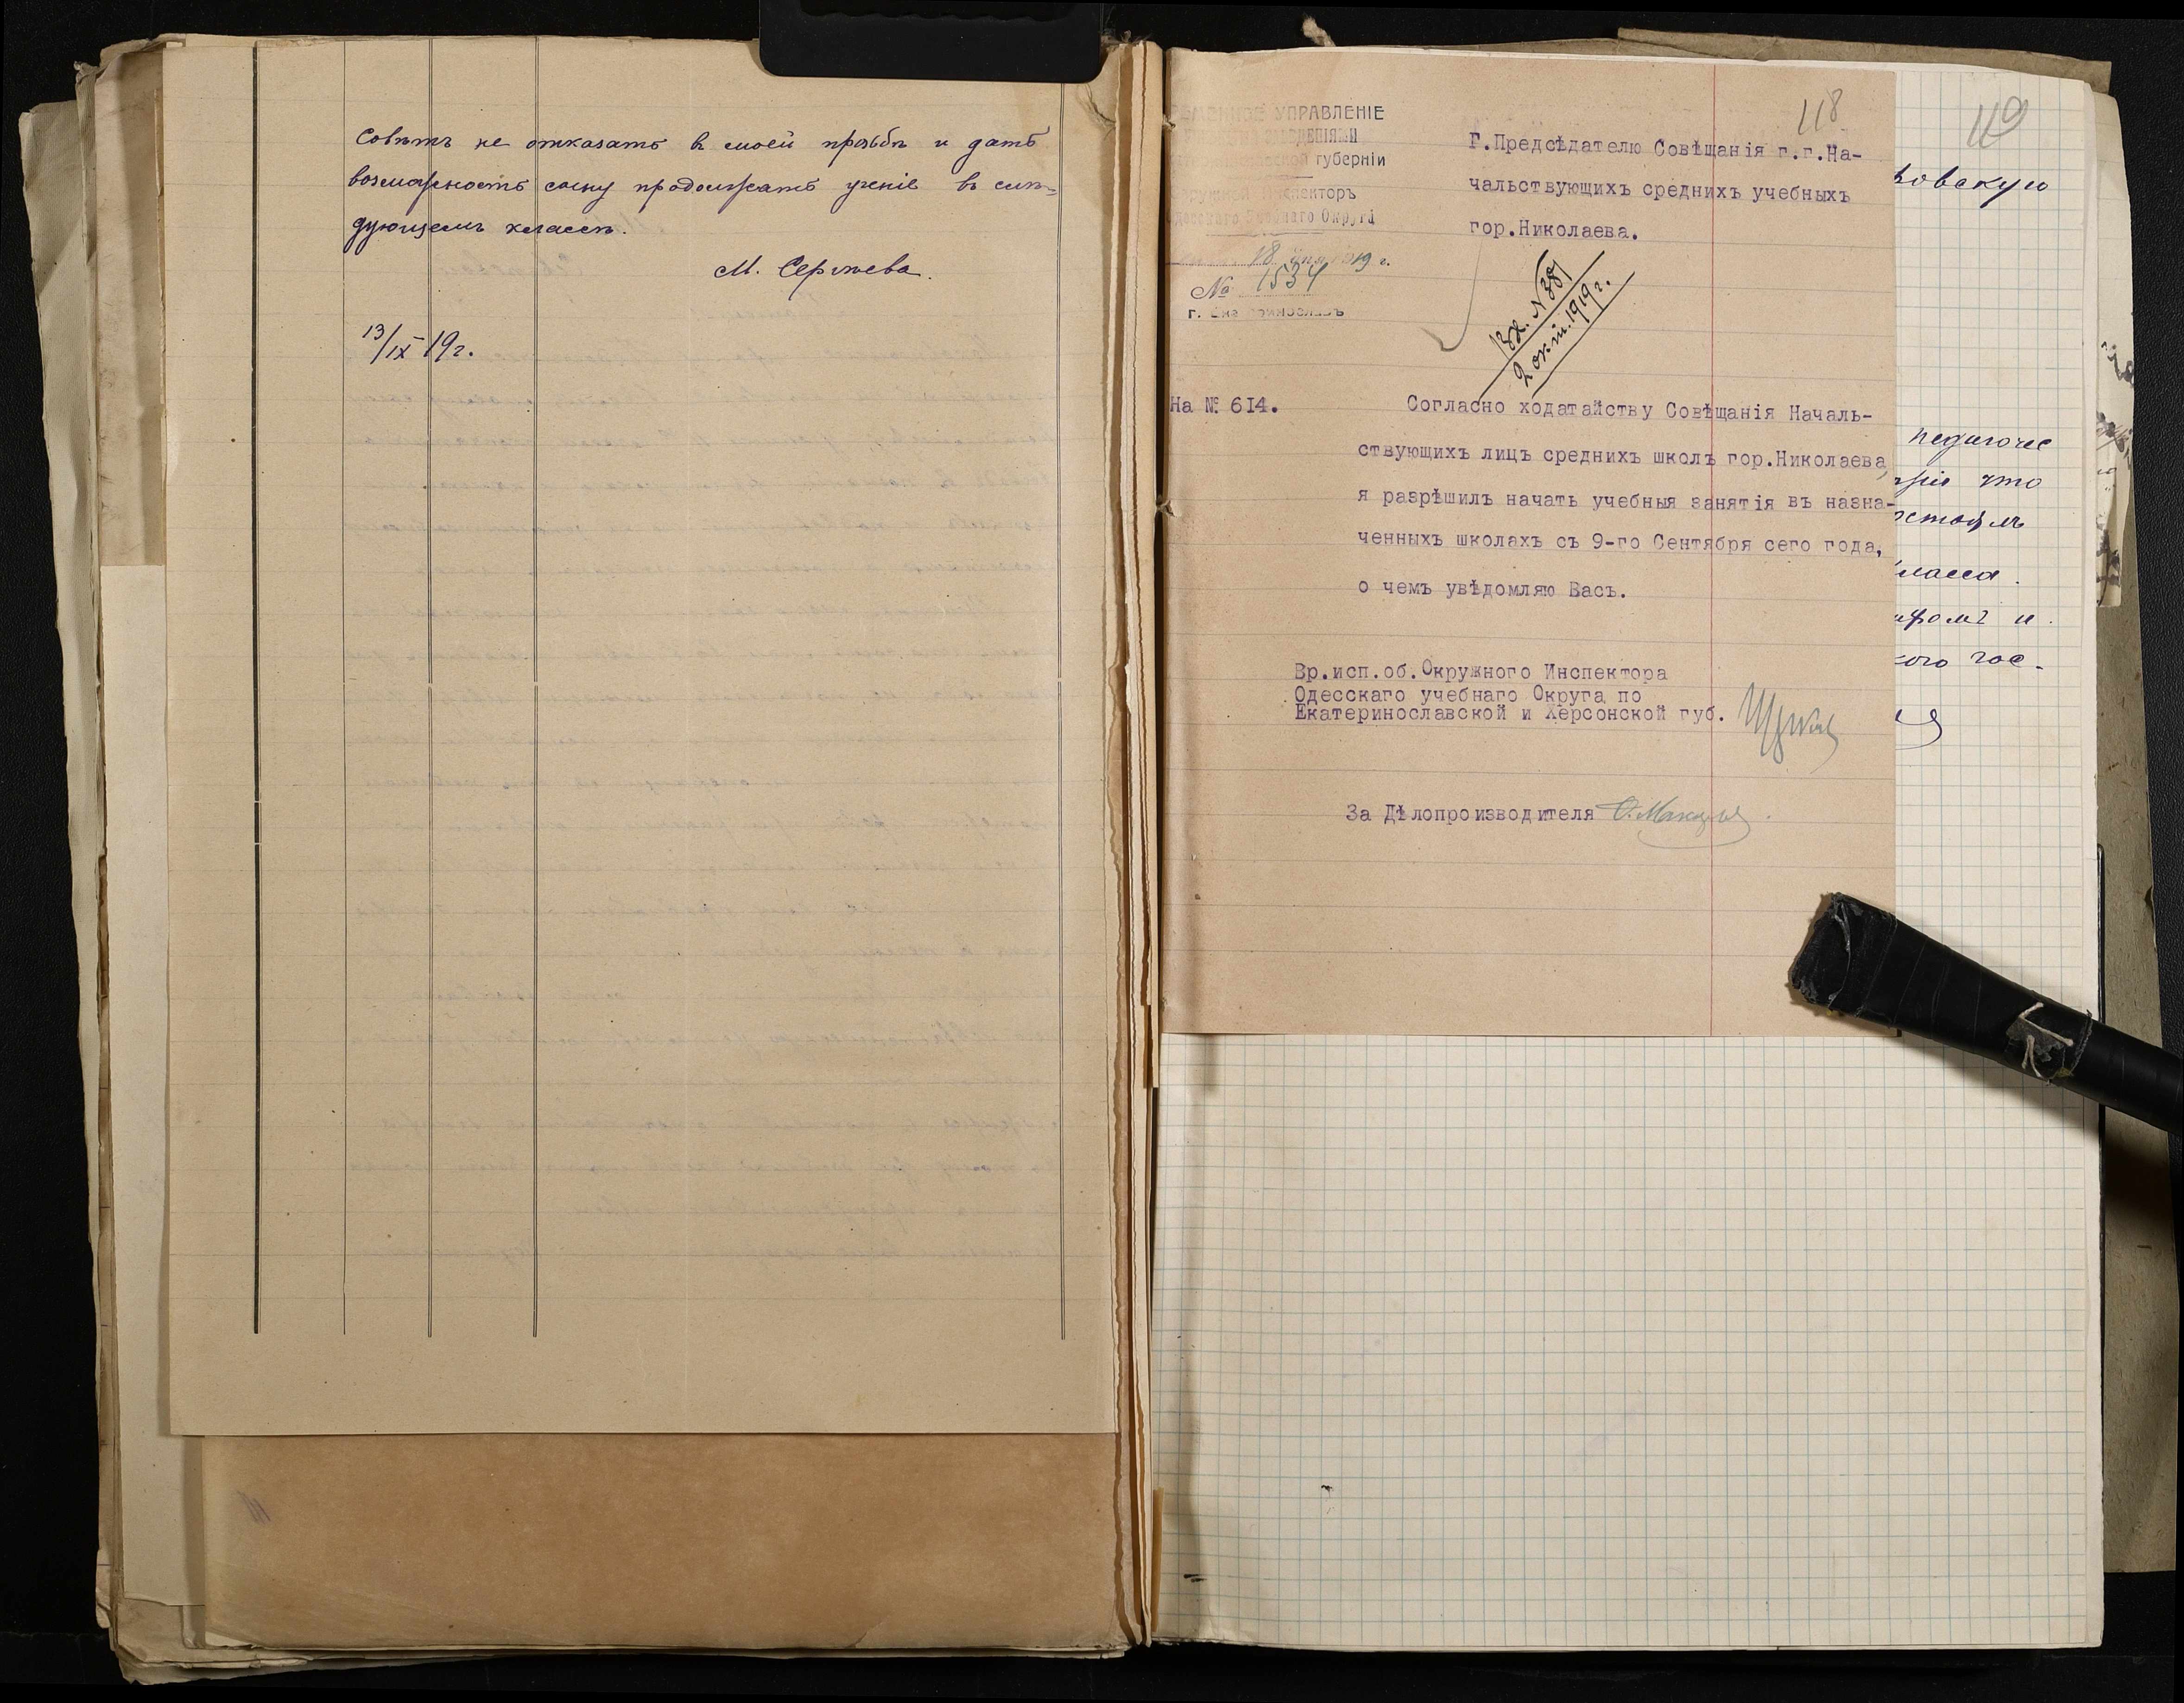 Совѣтъ не отказать в моей прозьбѣ и дать
возможность сыну продолжать ученіе въ слѣ-
дующемъ классѣ.
М. Сергѣева.
13/IX 19г.
118
УПРАВЛЕНІЕ
губерніи
Одесскаго Учебнаго Округа
18 1919 г.
№ 1534
г.
Г.Предсѣдателю Совѣщанія г.г.На-
чальствующихъ среднихъ учебныхъ
гор.Николаева.
Вх. №381
2 окт. 1919г.
На № 6I4.
Согласно ходатайству Совѣщанія Началь-
ствующихъ лицъ среднихъ школъ гор.Николаева,
я разрѣшилъ начать учебныя занятія въ назна-
ченныхъ школахъ съ 9-го Сентября сего года,
о чемъ увѣдомляю Васъ.
Вр.исп.об.Окружного Инспектора
Одесскаго учебнаго Округа по
Екатеринославской и Херсонской губ.
За Дѣлопроизводителя
119
вовскую
педагогес
что
ласса.
и
ого гос-